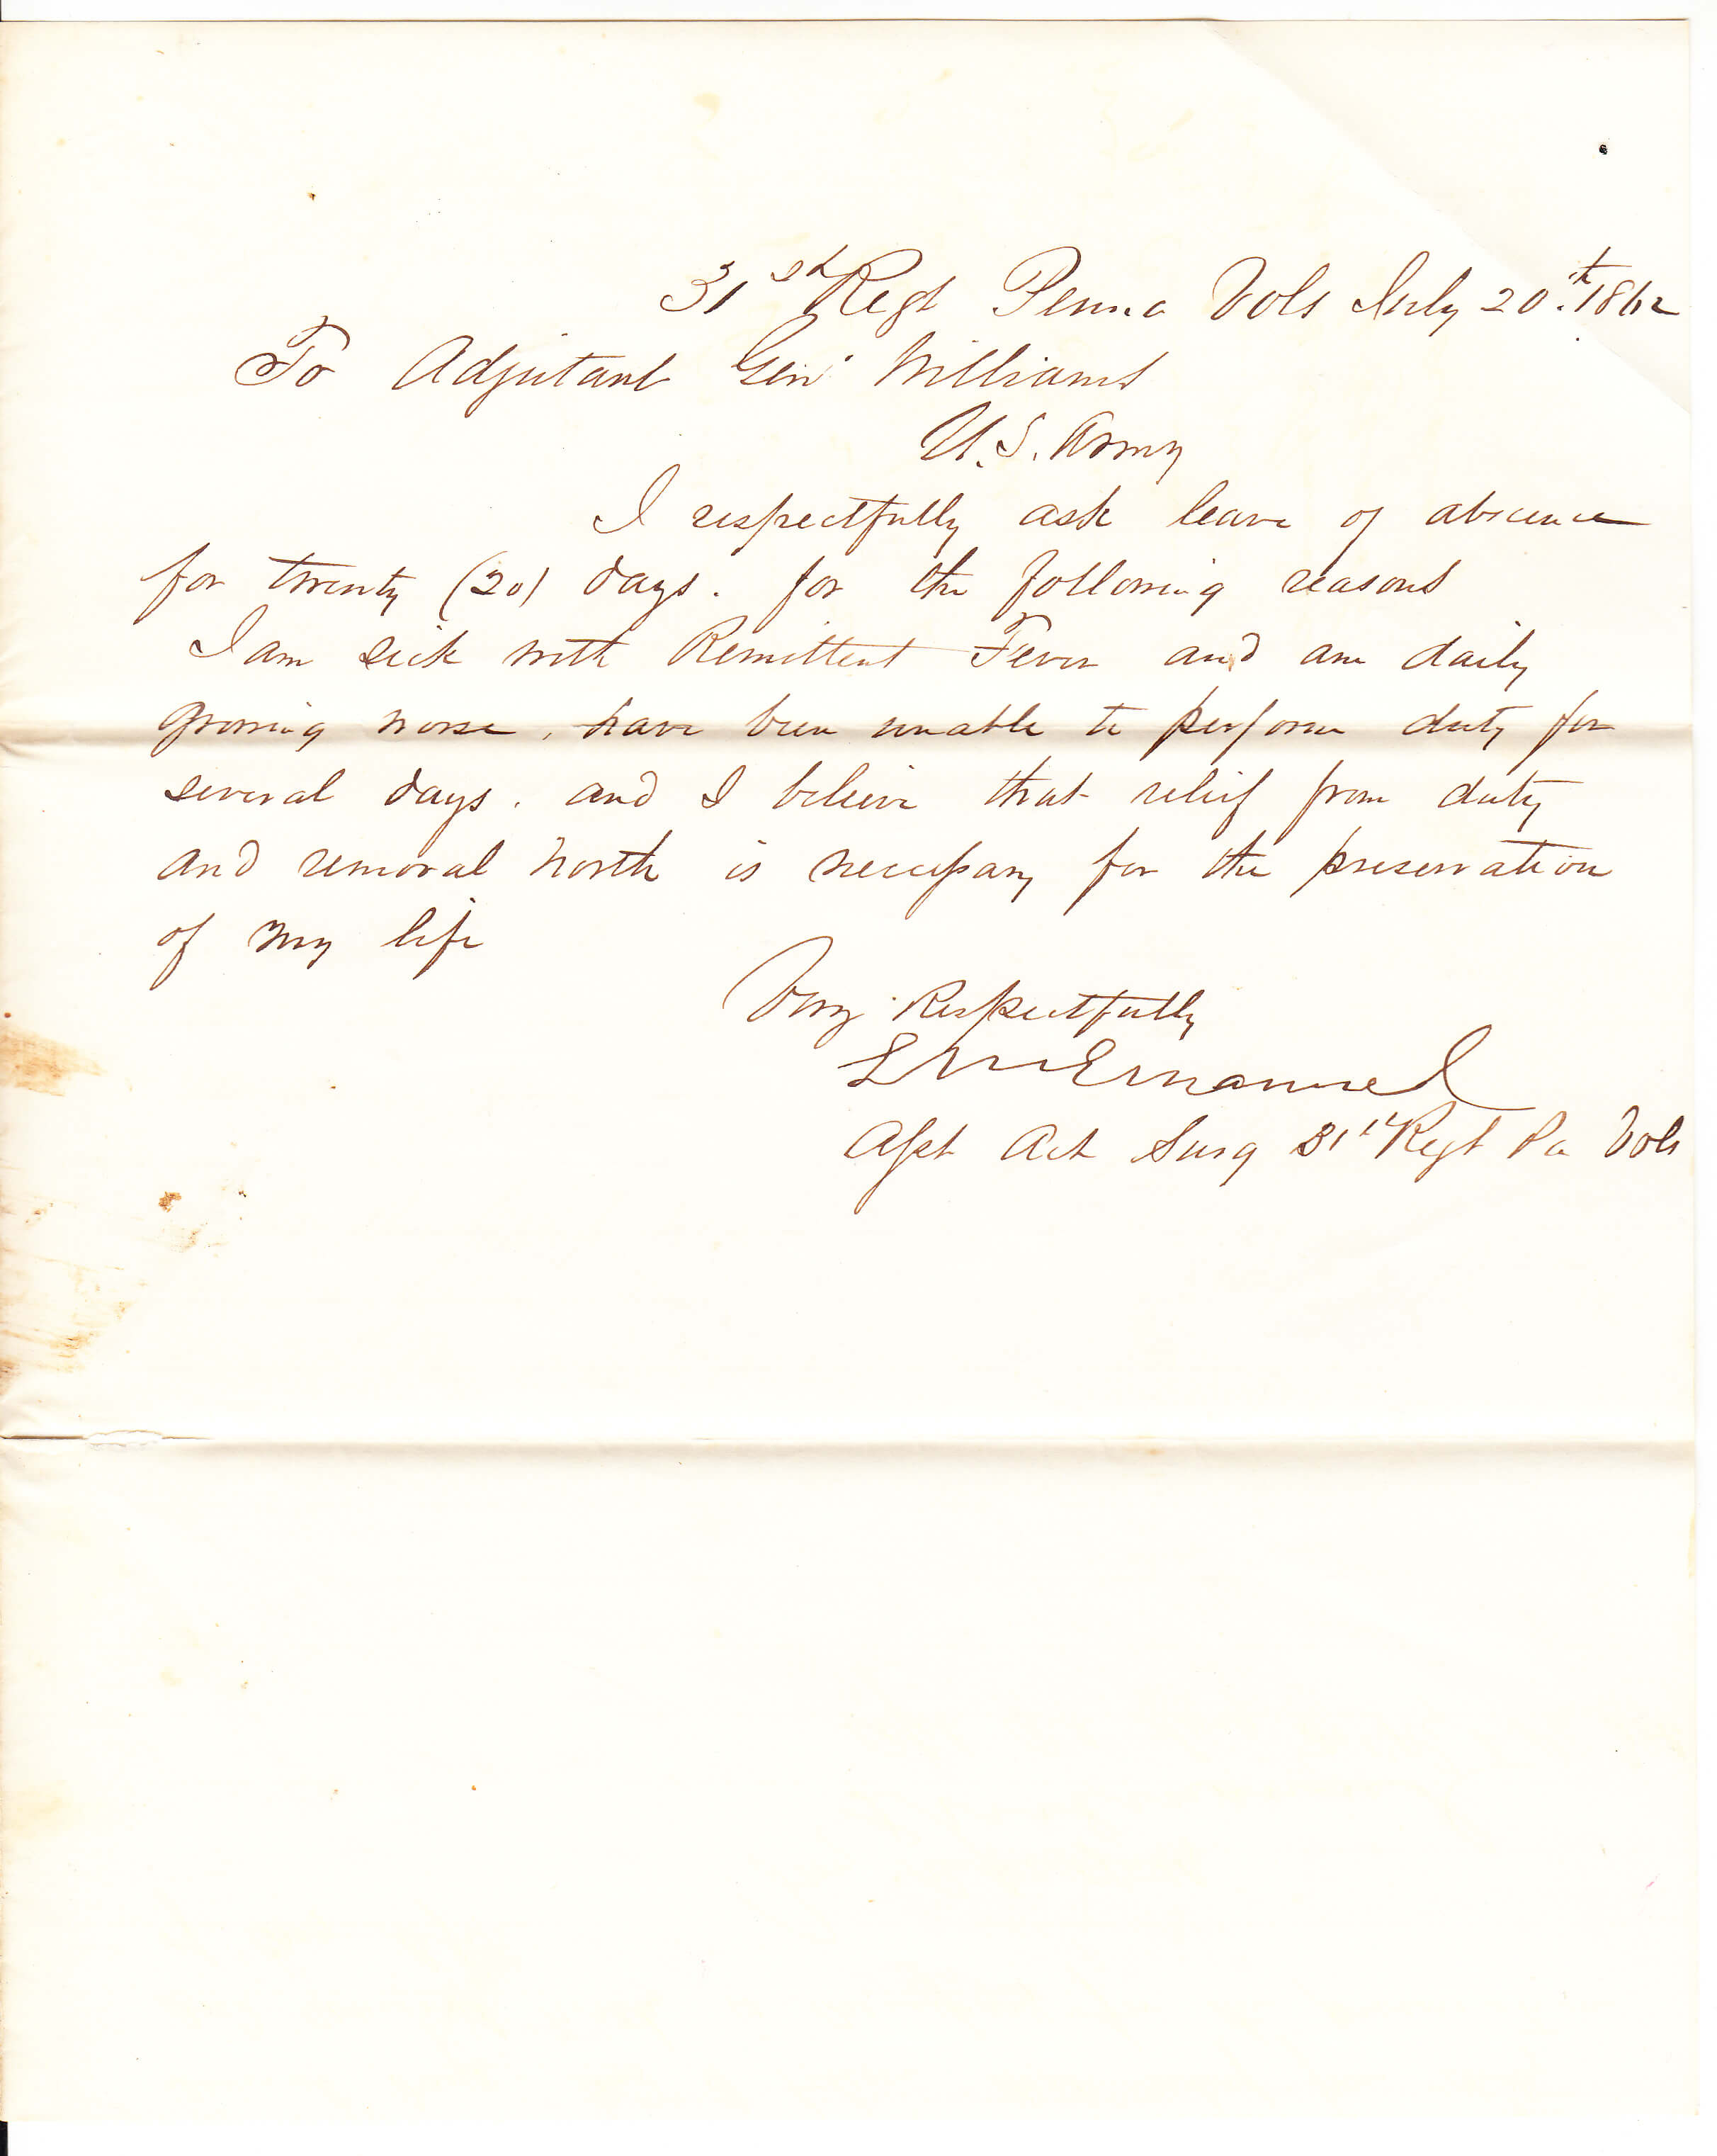 31st Regt Penna Vols July 20th 1862
To Adjutant Genl Williams
U.S. Army
I respectfully ask leave of absence
for twenty (20) days. for the following reasons
I am sick with Remittent Fever and am daily
growing worse, have been unable to perform duty for
several days. and I believe that relief from duty
and removal North is necessary for the preservation
of my life
Very Respectfully
L M Emanuel
Asst Act Surg 31st Regt Pa Vols